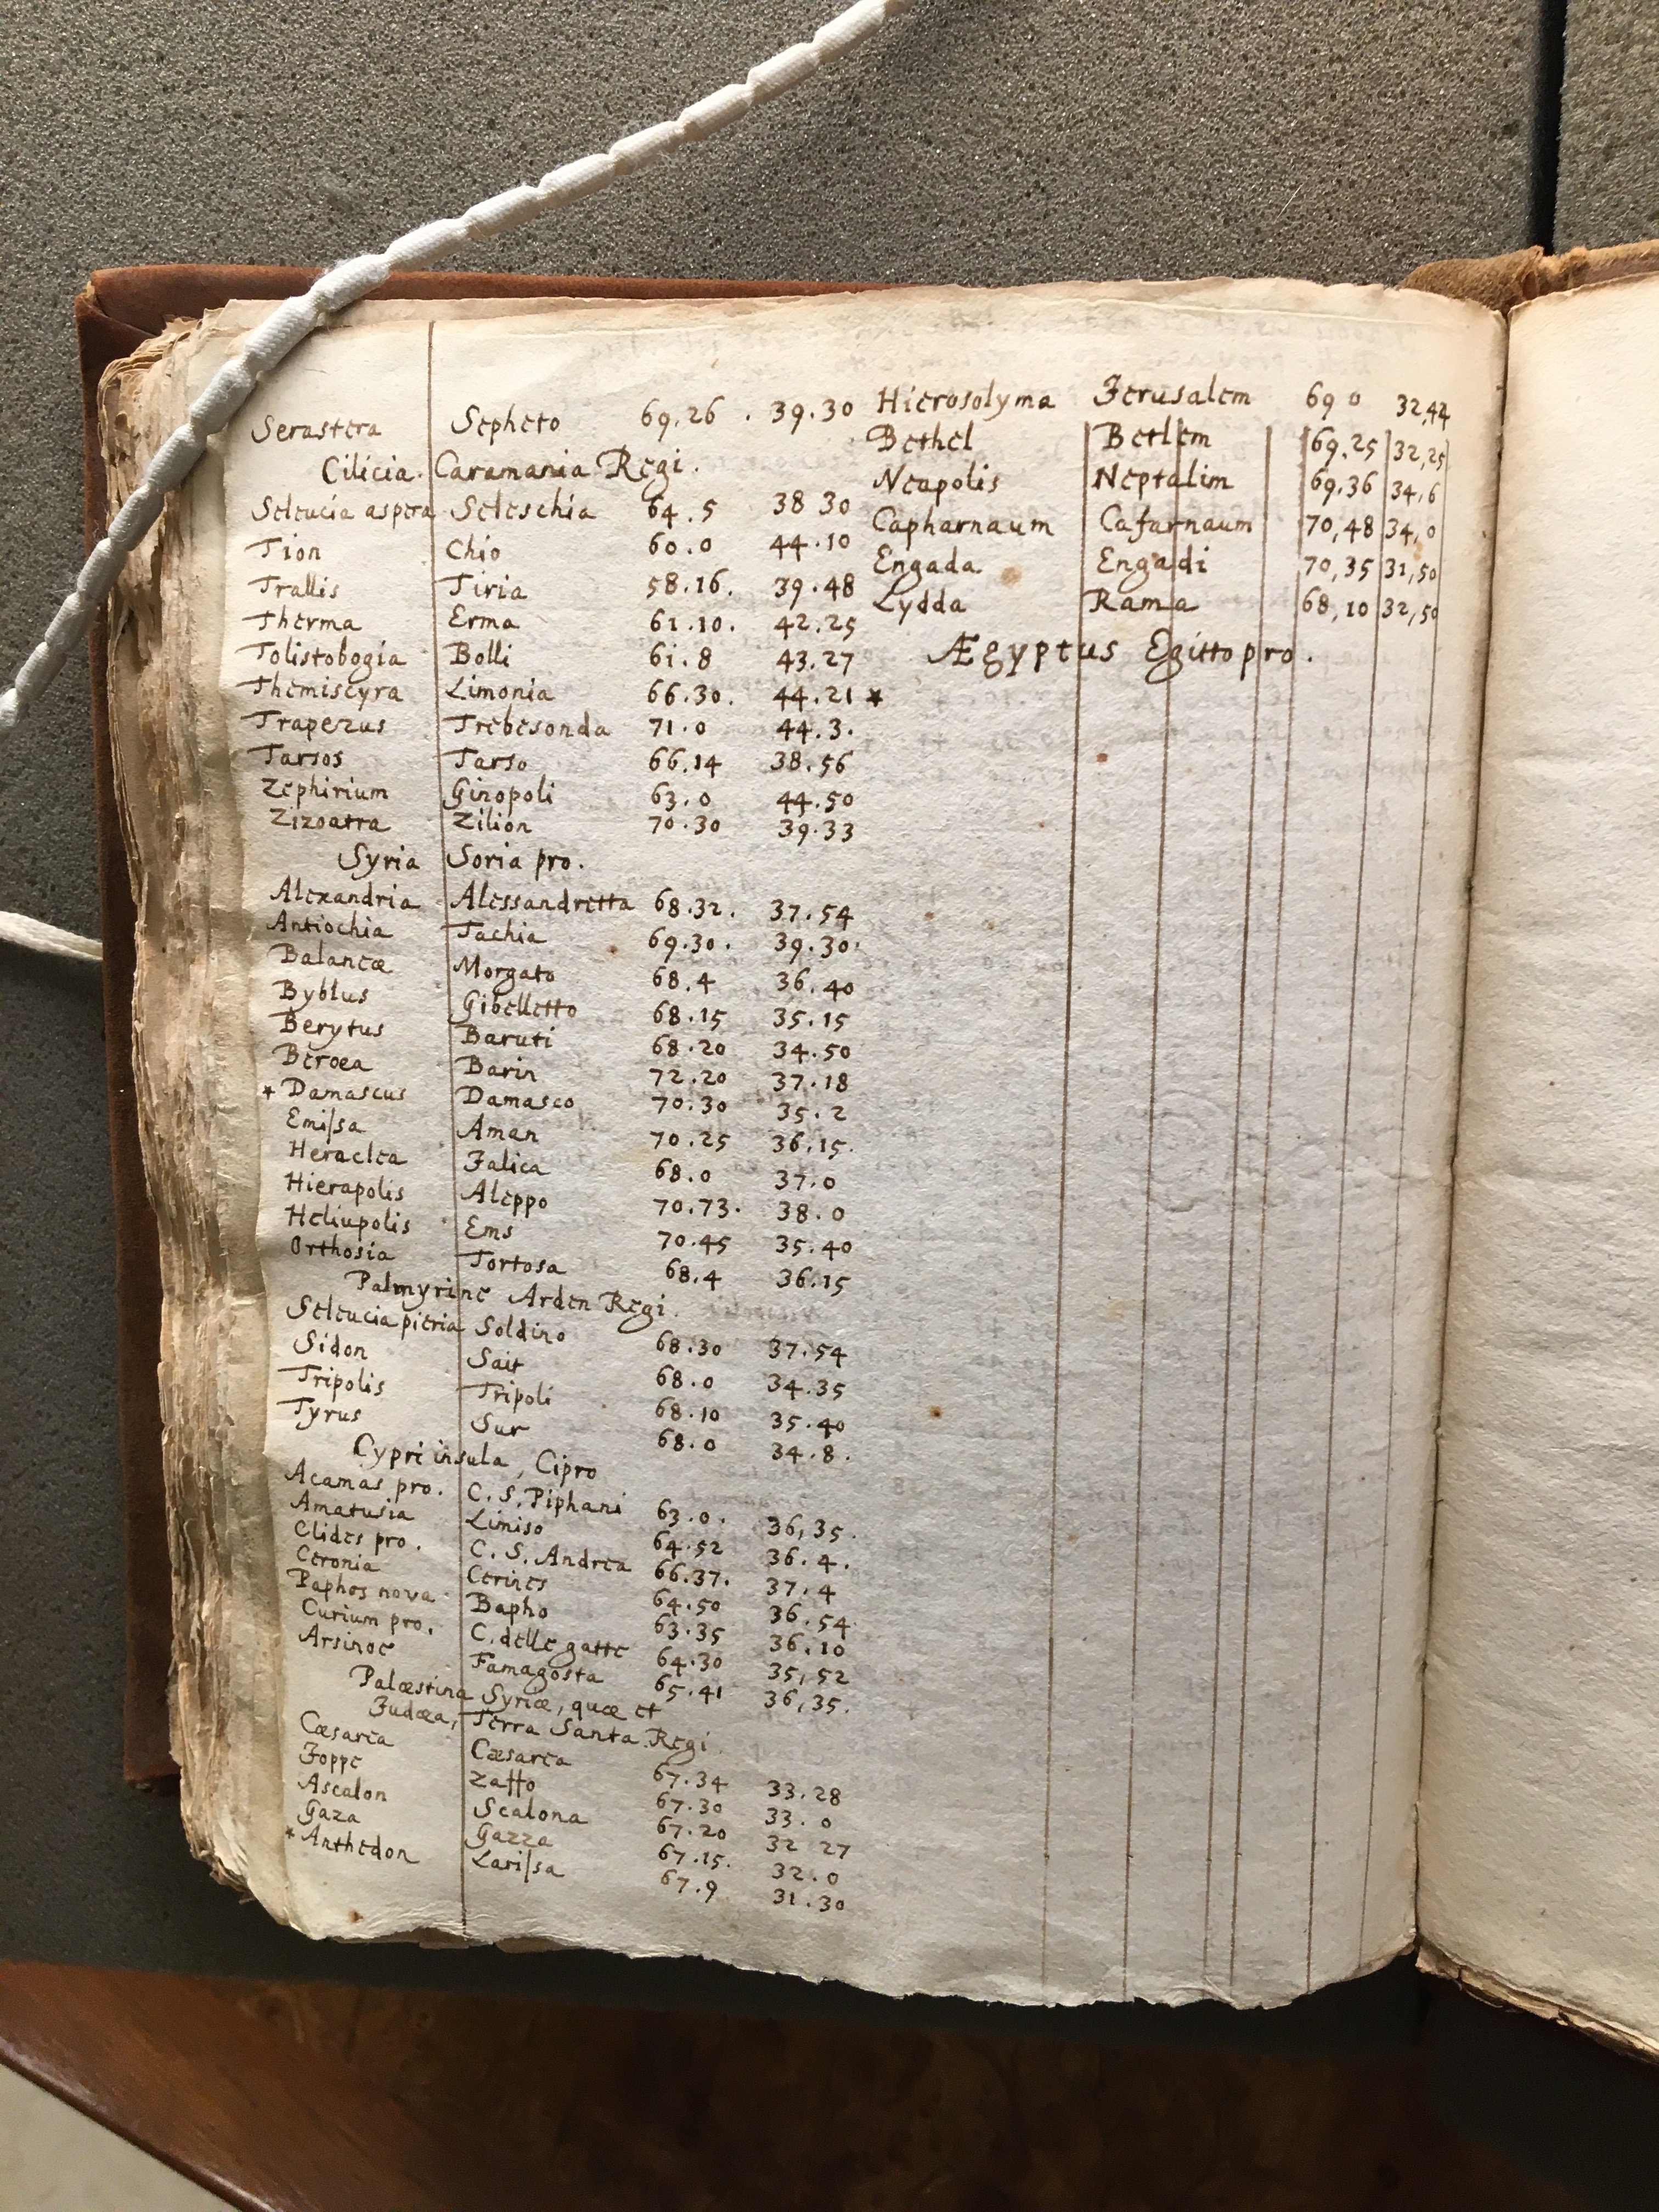 Serastera Sepheto 69.26 . 39.30
Cilicia. Caramania Regi.
Seleucia aspera Seleschia 64.5 38 30
Tion Chio 60.0 44.10
Trallis Tiria 58.16. 39.48
Therma Erma 61.10. 42.25
Tolistobogia Bolli 61.8 43.27
Themiscyra Limonia 66.30. 44.21 *
Trapezus Trebesonda 71.0 44.3.
Tarsos Tarso 66.14 38.56
Zephirium Ginopoli 63.0 44.50
Zizoatra Zilion 70.30 39.33
Syria Soria pro.
Alexandria Alessandretta 68.32. 37.54
Antiochia Tachia 69.30. 39.30.
Balaneæ Morgato 68.4 36.40
Byblus Gibelletto 68.15 35.15
Berytus Baruti 68.20 34.50
Beroea Barin 72.20 37.18
* Damascus Damasco 70.30 35.2
Emiſsa Aman 70.25 36.15.
Heraclea Jalica 68.0 37.0
Hierapolis Aleppo 70.73. 38.0
Heliupolis Ems 70.45 35.40
Orthosia Tortosa 68.4 36.15
Palmyrine Arden Regi.
Seleucia pieria Soldino 68.30 37.54
Sidon Sait 68.0 34.35
Tripolis Tripoli 68.10 35.40
Tyrus Sur 68.0 34.8.
Cypri insula, Cipro
Acamas pro. C. S. Piphani 63.0. 36,35.
Amatusia Limiso 64.52 36.4.
Clides pro. C. S. Andrea 66.37. 37.4
Ceronia Cerines 64.50 36.54
Paphos nova Bapho 63.35 36.10
Curium pro. C. delle gatte 64.30 35,52
Arsinoe Famagosta 65.41 36,35.
Palæstina Syriæ, quæ et
Judæa, Terra Santa Regi.
Cæsarea Cæsarea 67.34 33.28
Joppe Zaffo 67.30 33.0
Ascalon Scalona 67.20 32 27
Gaza Gazza 67.15. 32.0
* Anthedon Lariſsa 67.9 31.30
Hierosolyma Jerusalem 69 0 32,44
Bethel Betlem 69.25 32,25
Neapolis Neptalim 69.36 34,6
Capharnaum Cafarnaum 70,48 34,0
Engada Engadi 70,35 31,50
Lydda Rama 68,10 32,50
Ægyptus Egitto pro.